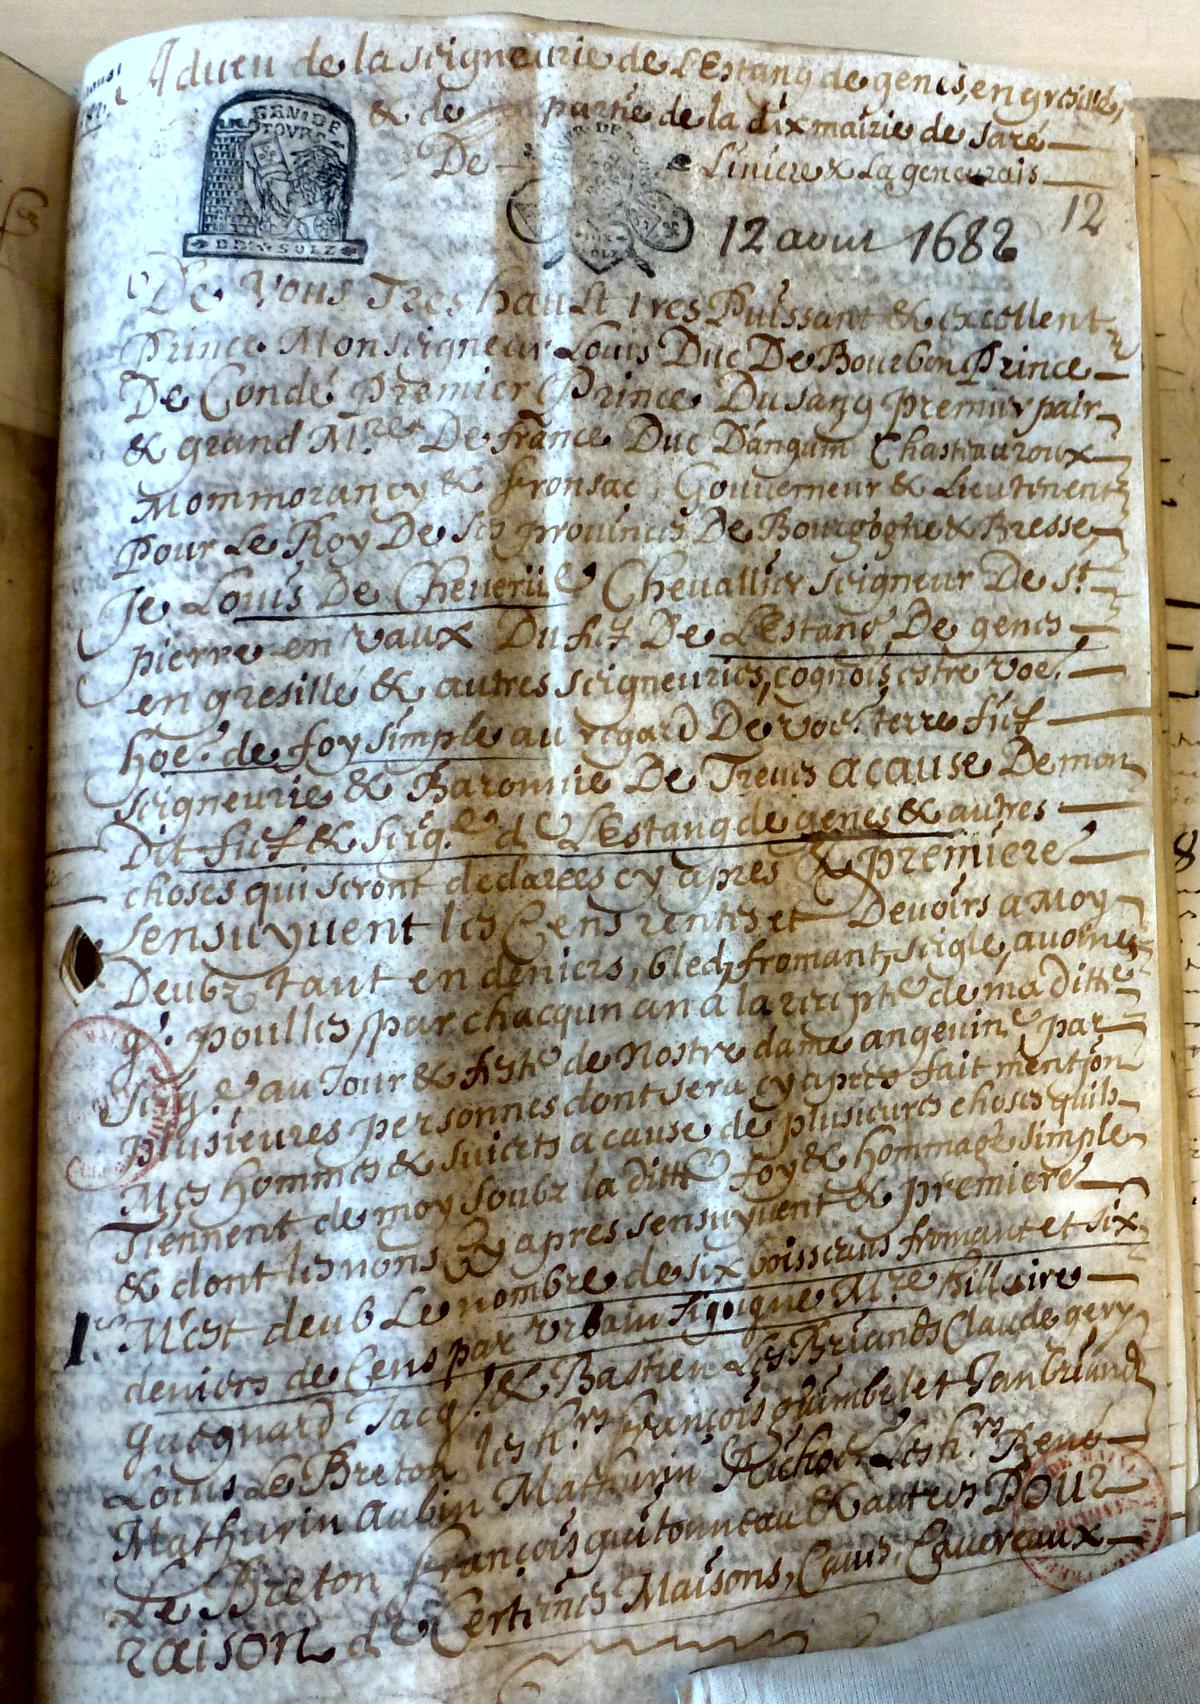 Adueu de la seigneurie de LEstang de genes, en gresillé,
& de partie de la dixmairie de Saré
De Liniere & La geneurais
GEN. DE
TOURS
12
12 aout 1682
De Vous Tres hault tres Puissant & excellent
Prince Monseigneur Louis Duc De Bourbon Prince
De Condé Premier Prince Du sang premier pair
& grand M.re De france Duc Danguin Chasteauroux
Mommorancy & fronsac, Gouuerneur & Lieutenent
Pour Le Roy De ses prouinces De Bourgogne & Bresse,
Je Louis De Cheuerüe Cheuallier seigneur De St.
pierre en vaux Du fief De LEstang De genes,
en gresillé & autres seigneuries, cognois estre voe.
hoe. de foy simple au regard De voe. terre fief
seigneurie & Baronnie De Treues a cause De mon
Dit fief & seig.e de LEstang de genes & autres
choses qui seront declarees cy apres & premiere
sensuyuent les Cens rentes et Deuoirs a Moy
Deubz tant en deniers, bled, fromant, seigle, auoine,
poulles par chacqun an a la recepte de ma ditte
seig.e au Jour & feste de Nostre dame angeuine par
plusieures personnes dont sera cy apres fait mention
Mes hommes & suiects a cause de plusieures choses quils
Tiennent de moy soubz la ditte foy & hommage simple
& dont les nons cy apres sensuyuent & premiere
1. M'est deub Le nombre de six boisseaus fromant et six
deniers de Cens par Vrbain M.re hillaire
Jacq. & Bastien Les Briands Claude gery
Louis Le Breton les h.rs François Jan Briand
Mathurin Aubin Mathurin Les h.rs René
Le Breton François guitonneau & autres Pour
raison de Certaines Maisons, Caues, Caureaux